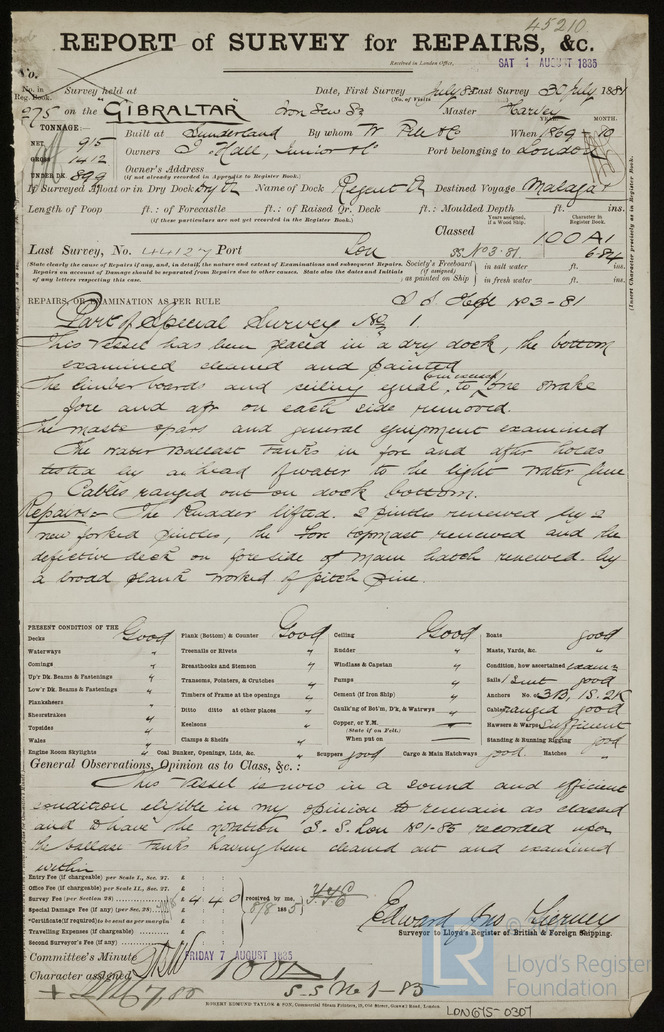 45210
REPORT of SURVEY for REPAIRS, &c.
Received in London Office,
SAT 1 AUGUST 1885
No.
No. in Reg. Book. Survey held at Date, First Survey July 85 Last Survey 30 July 1885
(No. of Visits
275 on the "GIBRALTAR" Iron Scw Sr Master Harvey
YEAR. MONTH.
TONNAGE:— Built at Sunderland By whom W Pile & Co When 1869-10
NET 915
GROSS 1412
UNDER DK. 899
Owners J. Hall, Junior & Co Port belonging to London
Owner's Address
(if not already recorded in Appendix to Register Book.)
If Surveyed Afloat or in Dry Dock Dry Dk Name of Dock Regent Dk Destined Voyage Malaga &
Length of Poop ft.: of Forecastle ft.: of Raised Qr. Deck ft.: Moulded Depth ft. ins.
(if these particulars are not yet recorded in the Register Book.)
Years assigned, if a Wood Ship.
Character in Register Book.
Classed 100 A1
Last Survey, No. 44127 Port Lon SS. No 3-81. 6-84
(State clearly the cause of Repairs if any, and, in detail, the nature and extent of Examinations and subsequent Repairs.
Repairs on account of Damage should be separated from Repairs due to other causes. State also the dates and Initials
of any letters respecting this case.
Society's Freeboard (if assigned) as painted on Ship
in salt water ft. ins.
in fresh water ft. ins.
(Insert Character precisely as in Register Book.
REPAIRS, OR EXAMINATION AS PER RULE No 3-81
Part of Special Survey No 1.
This vessel has been placed in a dry dock, the bottom
examined cleaned and painted
The limber boards and ceiling equal to one strake
fore and aft on each side removed.
The masts spars and general equipment examined
The water ballast tanks in fore and after holds
tested by a head of water to the light water line
Cables ranged out on dock bottom.
Repairs:- The Rudder lifted. 2 pintles renewed by 2
new forked pintles, the Fore topmast renewed and the
defective deck on foreside of Main hatch renewed by
a broad plank worked of pitch pine.
PRESENT CONDITION OF THE
Decks Good
Waterways "
Comings "
Up'r Dk. Beams & Fastenings "
Low'r Dk. Beams & Fastenings "
Planksheers "
Sheerstrakes "
Topsides "
Wales "
Engine Room Skylights "
Plank (Bottom) & Counter Good
Treenails or Rivets "
Breasthooks and Stemson "
Transoms, Pointers, & Crutches "
Timbers of Frame at the openings "
Ditto ditto at other places "
Keelsons "
Clamps & Shelfs "
Coal Bunker, Openings, Lids, &c. "
Ceiling Good
Rudder "
Windlass & Capstan "
Pumps "
Cement (if Iron Ship) "
Caulk'g of Bot'm, Dk, & Watrwys "
Copper, or Y.M. —
(State if on Felt.)
When put on —
Scuppers good Cargo & Main Hatchways good
Boats good
Masts, Yards, &c. "
Condition, how ascertained exam'n
Sails 1 Suit good
Anchors No. of 3B, 1S. 2K
Cables ranged good
Hawsers & Warps Sufficient
Standing & Running Rigging good
Hatches "
General Observations, Opinion as to Class, &c.:
This Vessel is now in a sound and efficient
condition eligible in my opinion to remain as classed
and to have the notation S.S. Lon No 1-85 recorded upon
the ballast tanks having been cleaned out and examined
within
Entry Fee (if chargeable) per Scale I., Sec. 27. £ : :
Office Fee (if chargeable) per Scale II., Sec. 27. £ : :
Survey Fee (per Section 28) £ 4 : 4 : 0
Special Damage Fee (if any) (per Sec. 28) £ : :
*Certificate (if required) to be sent as per margin
Travelling Expenses (if chargeable) £ : :
Second Surveyor's Fee (if any) £ : :
received by me,
8/8 1885
Edward Jno Tierney
Surveyor to Lloyd's Register of British & Foreign Shipping.
Committee's Minute FRIDAY 7 AUGUST 1885
Character assigned 100 A1
+ LMC 7,85 S.S No 1-85
ROBERT EDMUND TAYLOR & SON, Commercial Steam Printers, 19, Old Street, Goswell Road, London
LON675-0307
LR
©
Lloyd's Register
Foundation